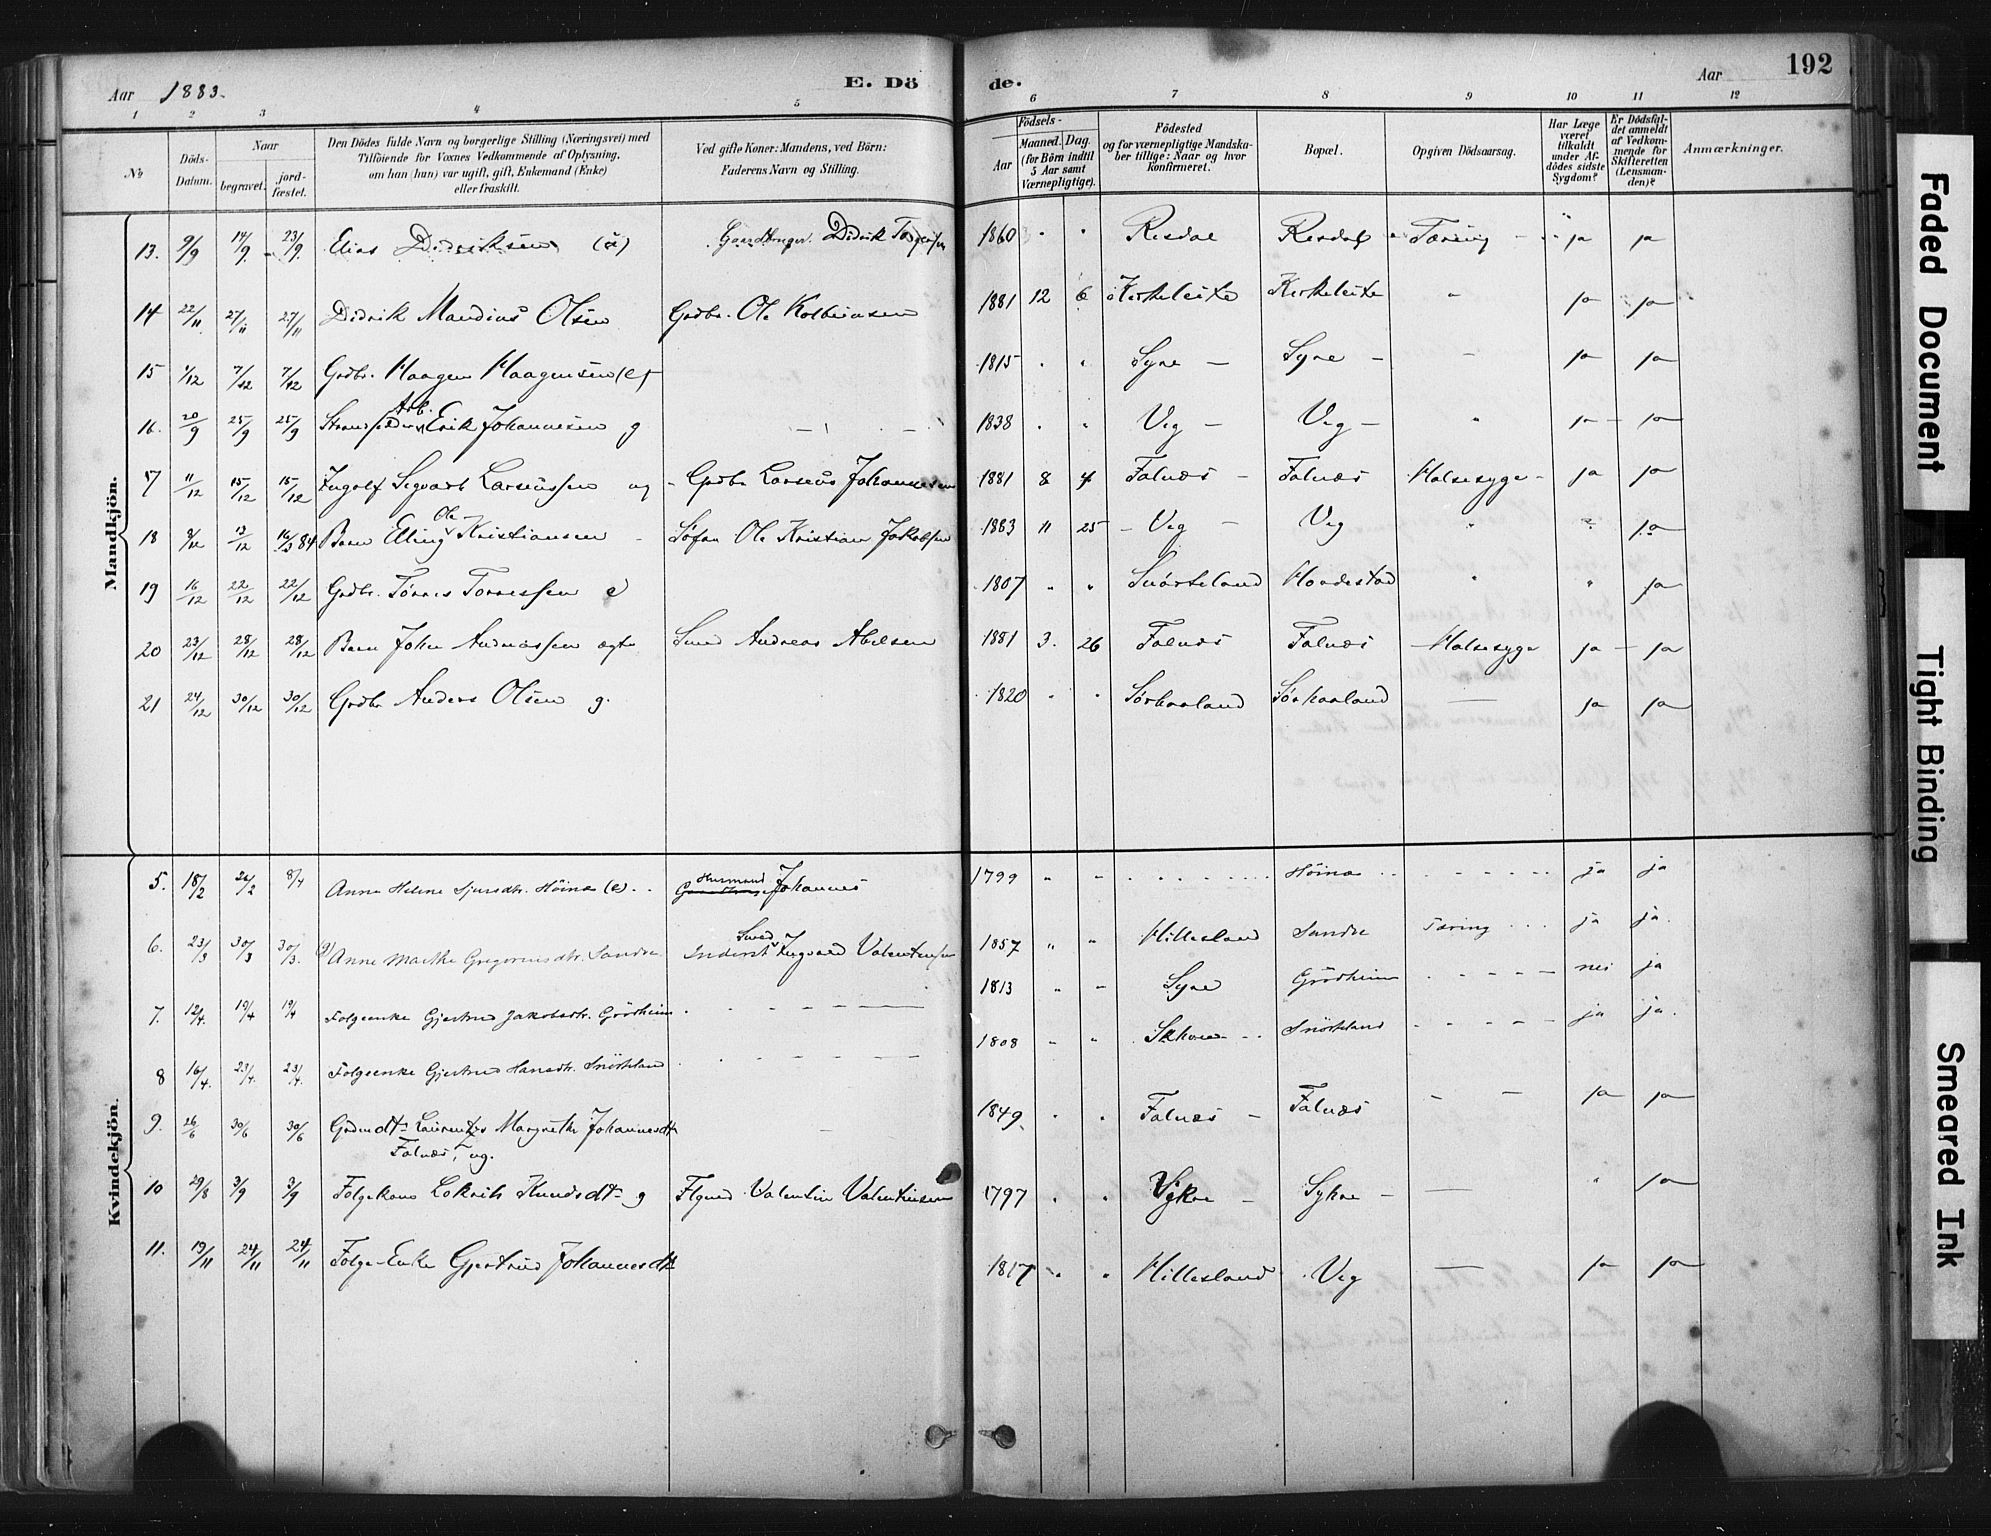 Aar 1883. E. Dö de. Aar 192
1 2 3 4 5 6 7 8 9 10 11 12
No
Döds-Datum.
Naar
begravet.
jord-fæstet.
Den Dödes fulde Navn og borgerlige Stilling (Næringsvei) med
Tilföiende for Voxnes Vedkommende af Oplysning,
om han (hun) var ugift, gift, Enkemand (Enke)
eller fraskilt.
Ved gifte Koner: Mandens, ved Börn:
Faderens Navn og Stilling.
Födsels-
Aar
Maaned. Dag.
(for Börn indtil
5 Aar samt
Værnepligtige).
Födested
og for værnepligtige Mandska-
ber tillige: Naar og hvor
konfirmeret.
Bopæl.
Opgiven Dödsaarsag.
Har Læge
været
tilkaldt
under Af-
dödes sidste
Sygdom?
Er Dödsfal-
det anmeldt
af Vedkom-
mende for
Skifteretten
(Lensman-
den)?
Anmærkninger.
Mandkjön.
13. 9/9 14/9 - 23/9 Elias Didriksen Didrik 1860 " " Risdal Risdal Tæring - ja ja
14 22/11 27/11 27/11 Didrik Mandius Olsen Grdbr. Ole Kolbeinsen 1881 12 6 Kirkeleite Kirkeleite " ja ja
15 1/12 7/12 7/12 Grdbr. Haagen Haagensen (e) 1815 " " Syre - Syre - - ja ja
16. 20/9 25/9 25/9 Arb. Erik Johannesen g 1838 " " Veg - Veg - " ja - ja
17 11/12 15/12 15/12 Ingolf Segvart Larsenssen ug - Grdbr Larsens Johannesen 1881 8 4 Falnæs - Falnæs Halsesyge - ja ja
18 8/12 13/12 16/3 84 Barn Elling Ole Kristiansen - Söfar Ole Kristian Jakobsen 1883 11 25 - Veg - Veg " " ja
19 16/12 22/12 22/12 Grdbr. Törres Torressen e 1807 " " Snörteland Haadestad " " ja
20 23/12 28/12 28/12 Barn John Andreassen ægte Smed Andreas Abelsen 1881 3. 26 Falnæs Falnæs Halsesyge ja - ja
21 24/12 30/12 30/12 Grdbr Anders Olsen g. 1820 " " Sörhaaland Sörhaaland - ja ja
Kvindekjön.
5. 18/2 26/2 8/4 Anne Helene Sjursdtr. Höines (e) . . Husmand Johannes 1799 " " Höines ja ja
6. 23/3 30/3 30/3. g) Anne Marthe Gregoriusdtr. Sandve Inderst Smed Ingvard Valentinsen 1857 " " Hillesland Sandve Tæring ja ja.
7. 12/4. 19/4 19/4 Folgeenke Gjertrud Jakobsdtr. Grödheim 1813 " " Syre Grödheim nei ja
8 16/4. 23/4. 23/4. Folgeenke Gjertrud Hansdtr. Snörteland 1808 " " Snörteland ja ja.
9. 26/6 30/6 30/6 Grdmdtr Laurentze Margrethe Johannesdtr
Falnæs, ug. 1849 " " Falnæs - Falnæs - - ja ja
10 29/8 3/9 3/9 Folgekone Knudsdtr g Flgmd Valentin Valentinsen 1797 " " Sykve - - " ja
11. 19/11 24/11 24/11 Folge-Enke Gjertrud Johannesdtr 1817 " " Hillesland Veg - ja ja
Faded Document
Tight Binding
Smeared Ink